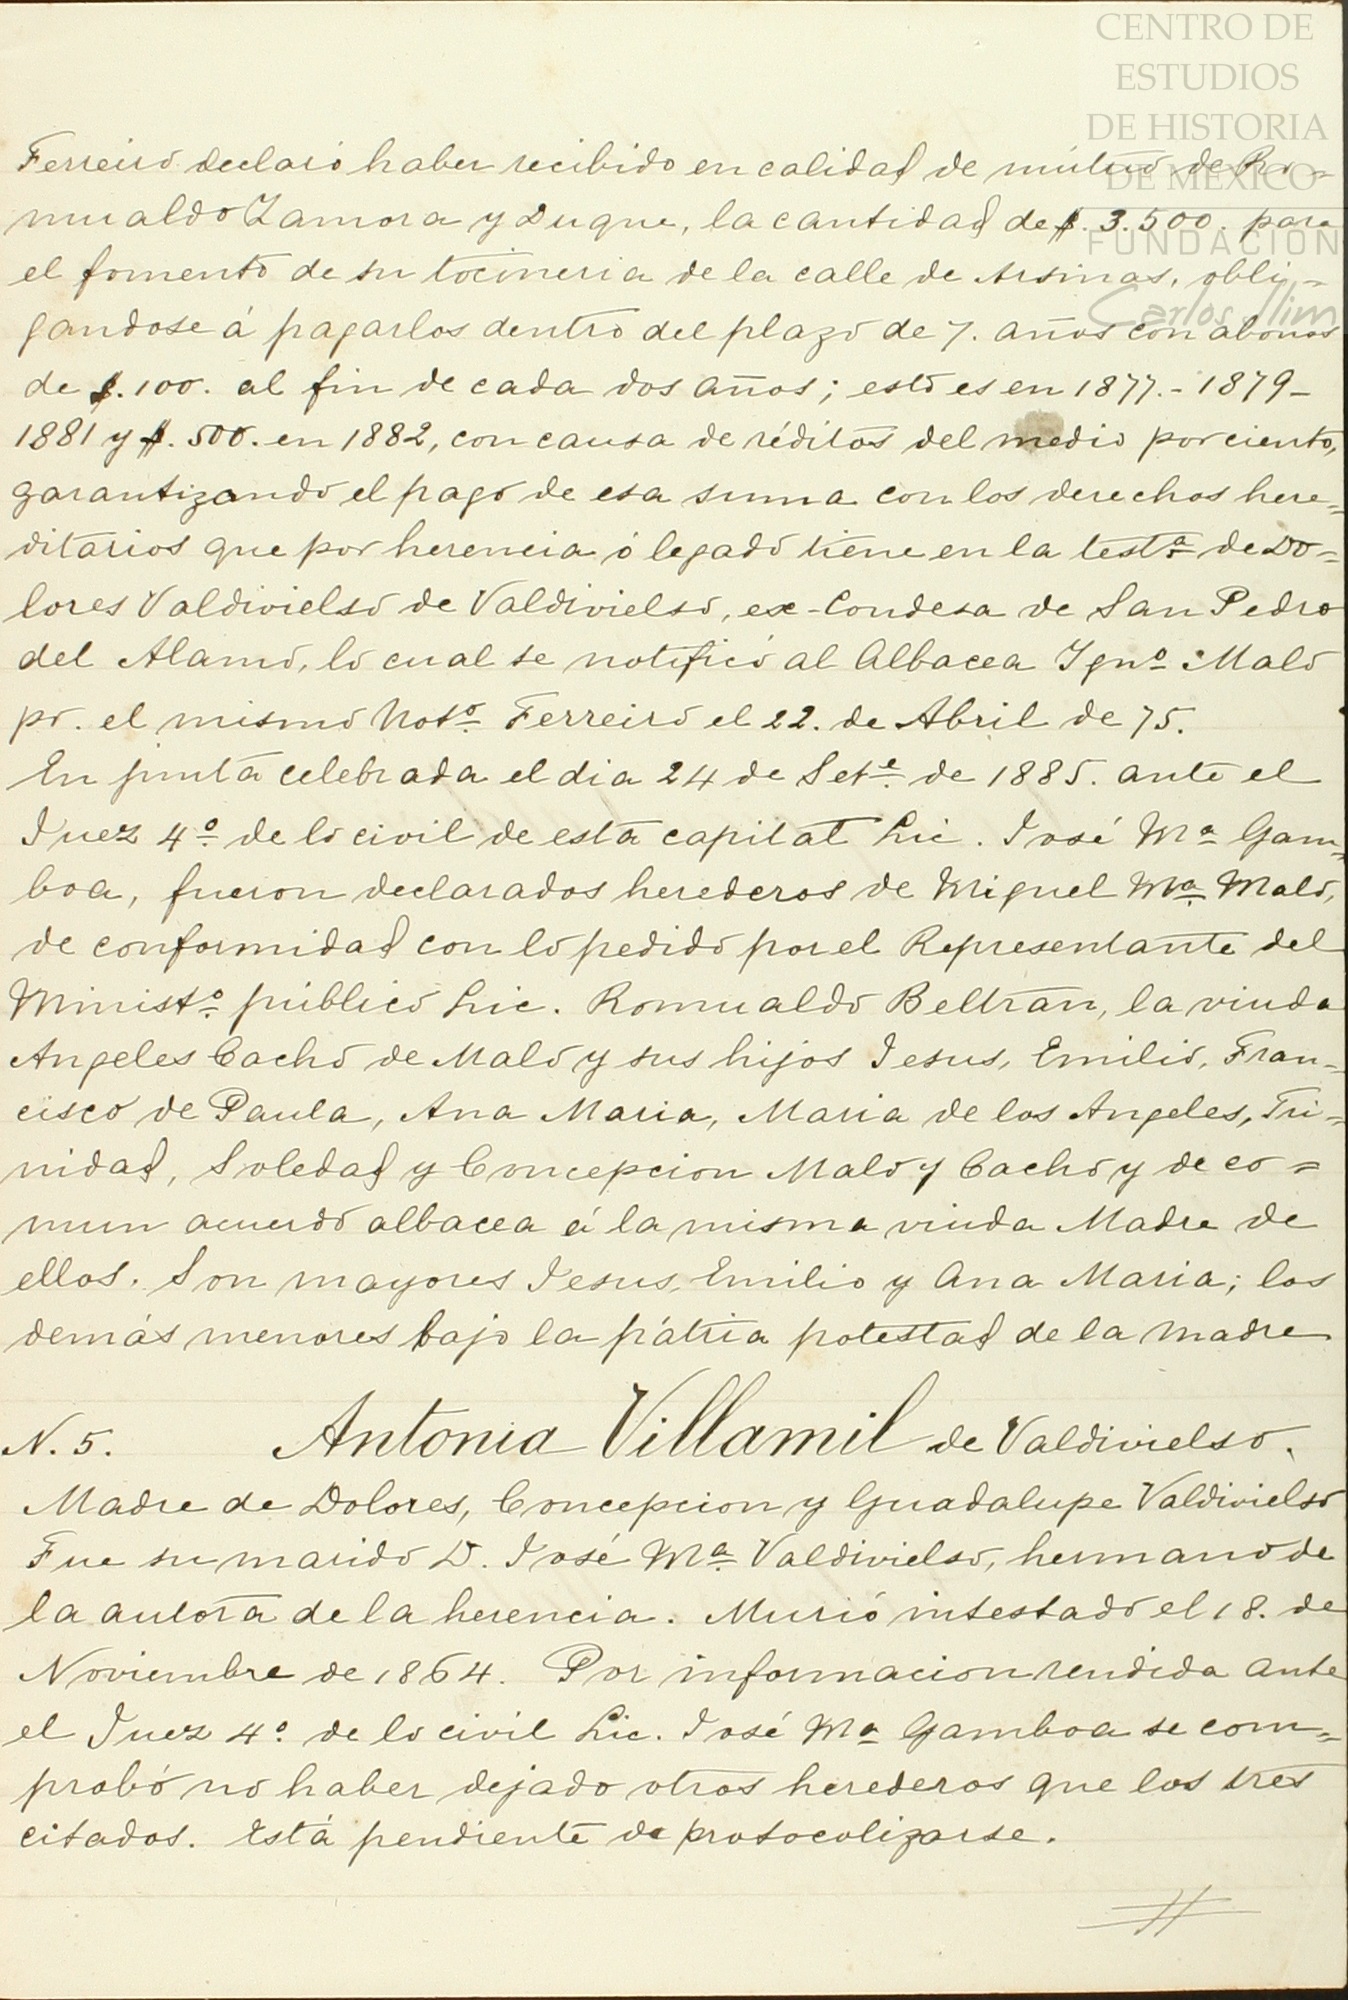 CENTRO DE
ESTUDIOS
DE HISTORIA
DE MÉXICO
FUNDACIÓN
Carlos Slim
Ferreiro declaró haber recibido en calidad de mútuo de Ro=
mualdo Zamora y Duque, la cantidad de $. 3.500. para
el fomento de su tocineria de la calle de Arsinas, obli=
gandose á pagarlos dentro del plazo de 7. años con abonos
de $. 100. al fin de cada dos años; esto es en 1877.- 1879-
1881 y $. 500. en 1882, con causa de réditos del medio por ciento,
garantizando el pago de esa suma con los derechos here=
ditarios que por herencia ó legado tiene en la testª de Do=
lores Valdivielso de Valdivielso, ex-Condesa de San Pedro
del Alamo, lo cual se notificó al Albacea Ygnº Malo
pr. el mismo Notº Ferreiro el 22. de Abril de 75.
En junta celebrada el dia 24 de Sete. de 1885. ante el
Juez 4º de lo civil de esta capital Lic. José Mª Gam=
boa, fueron declarados herederos de Miguel Mª Malo,
de conformidad con lo pedido por el Representante del
Ministº público Lic. Romualdo Beltran, la viuda
Angeles Cacho de Malo y sus hijos Jesus, Emilio, Fran=
cisco de Paula, Ana Maria, Maria de los Angeles, Tri=
nidad, Soledad y Concepcion Malo y Cacho y de co=
mun acuerdo albacea á la misma viuda Madre de
ellos. Son mayores Jesus, Emilio y Ana Maria; los
demás menores bajo la pátria potestad de la madre
N. 5. Antonia Villamil de Valdivielso.
Madre de Dolores, Concepcion y Guadalupe Valdivielso
Fue su marido D. José Mª Valdivielso, hermano de
la autora de la herencia. Murió intestado el 18. de
Noviembre de 1864. Por informacion rendida ante
el Juez 4º de lo civil Lic. José Mª Gamboa se com=
probó no haber dejado otros herederos que los tres
citados. Está pendiente de protocolizarse.